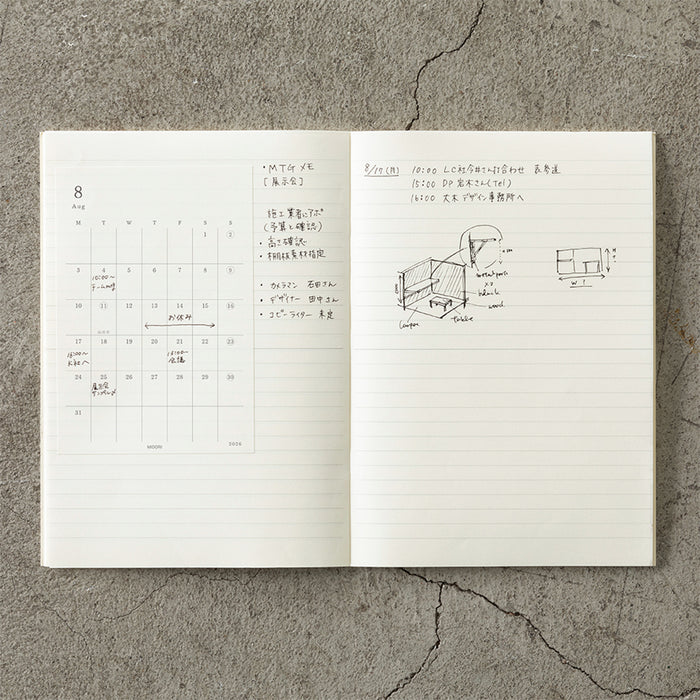 8
Aug
M T W T F S S
1 2
3 4 5 6 7 8 9
10:00〜
チームmtg
10 11 12 13 14 15 16
お休み
17 18 19 20 21 22 23
15:00〜
K社へ
16:00〜
会議
24 25 26 27 28 29 30
展示会
サンプル〆
31
MIDORI
2026
・MTGメモ
[展示会]
施工業者にアポ
(予算と確認)
・高さ確認
・棚板素材指定
・カメラマン 石田さん
・デザイナー 田中さん
・コピーライター 未定
8/17(月) 10:00 LC社今井さん打合わせ 表参道
15:00 DP岩木さん(Tel)
16:00 大木デザイン事務所へ
black
wood
table
W